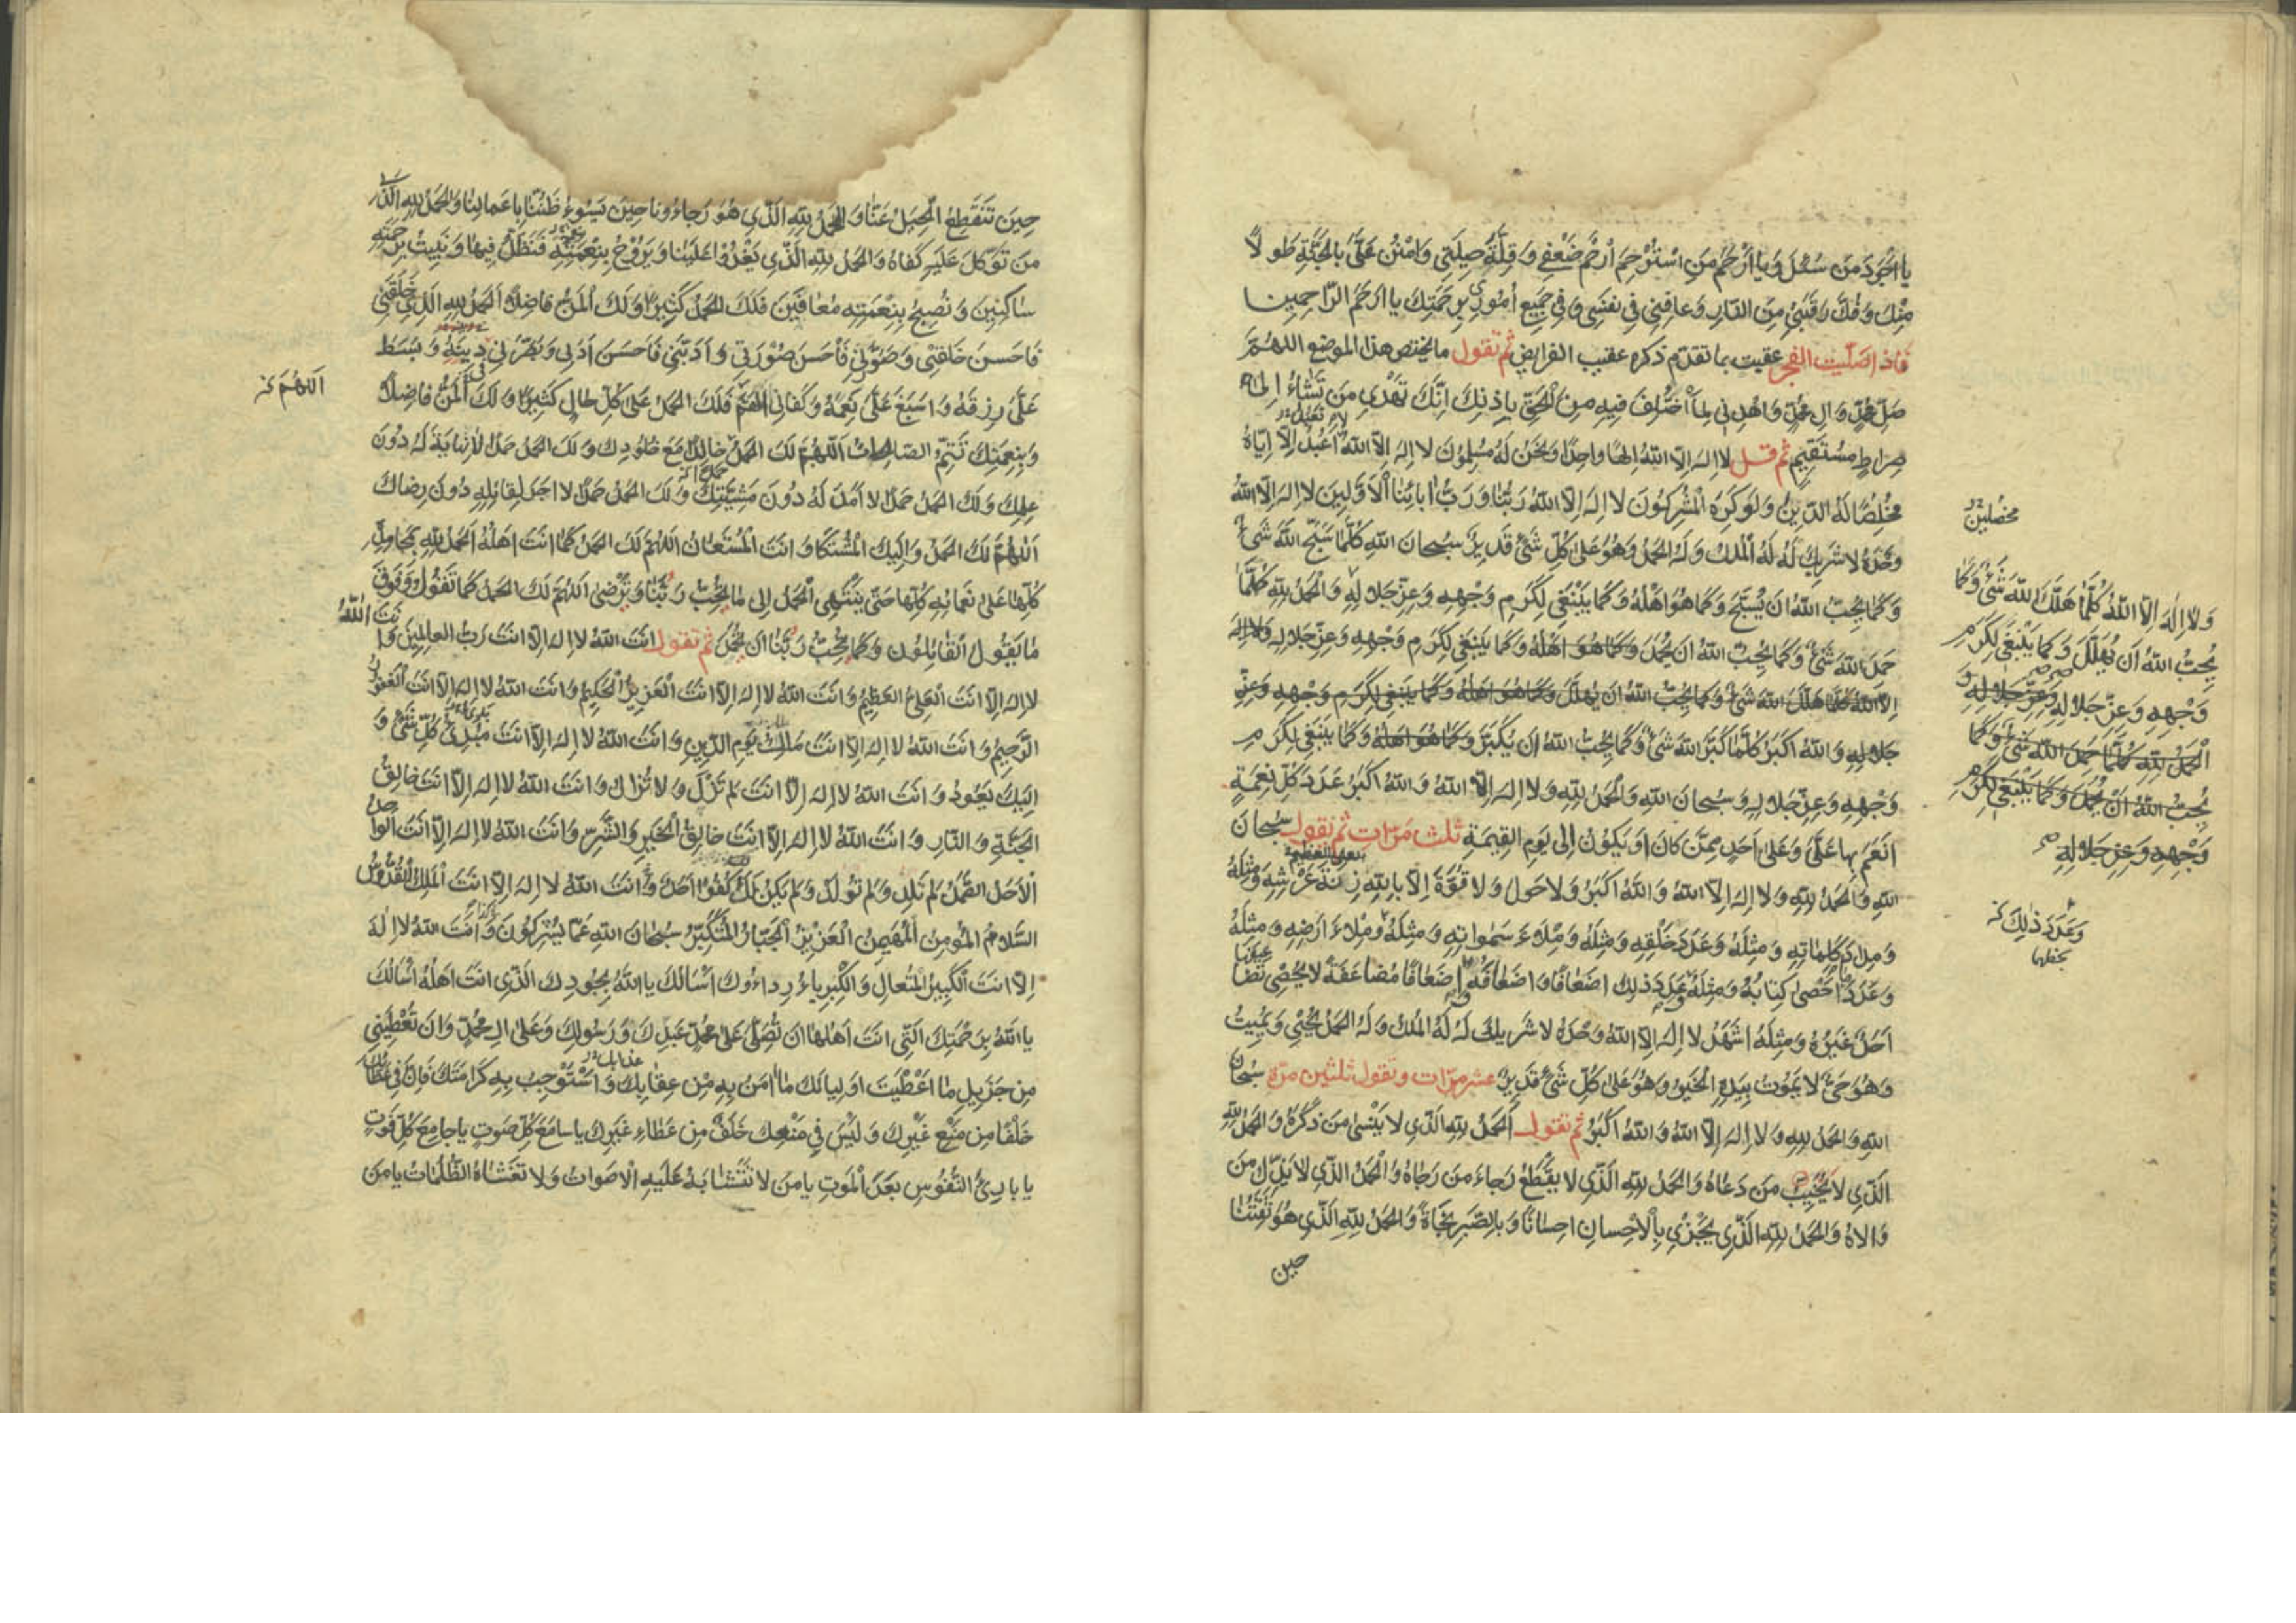 يا اجود من سئل ويا ارحم من استرحم ارحم ضعفي وقلة حيلتي وامنن علي بالجنة طولا
منك وفك رقبتي من النار وعافني في نفسي وفي جميع اموري برحمتك يا ارحم الراحمين
فاذا صليت الفجر عقيت بما تقدم ذكره عقيب الفرايض ثم تقول ما يختص هذا الموضع اللهم
صل محمد وال محمد واهدني لما اختلف فيه من الحق باذنك انك تهدي من تشاء الى
صراط مستقيم ثم قل لا اله الا الله الها واحدا ونحن له مسلمون لا اله الا الله لا نعبد الا اياه
مخلصا له الدين ولو كره المشركون لا اله الا الله ربنا ورب ابائنا الاولين لا اله الا الله
وحده لا شريك له له الملك وله الحمد وهو على كل شئ قدير سبحان الله كلما سبح الله شئ
وكما يحب الله ان يسبح وكما هو اهله وكما ينبغي لكرم وجهه وعز جلاله والحمد لله كلما
حمد الله شئ وكما يحب الله ان يحمد وكما هو اهله وكما ينبغي لكرم وجهه وعز جلاله ولا اله
الا الله كلما هلل الله شئ وكما يحب الله ان يهلل وكما هو اهله وكما ينبغي لكرم وجهه وعز
جلاله والله اكبر كلما كبر الله شئ وكما يحب الله ان يكبر وكما هو اهله وكما ينبغي لكرم
وجهه وعز جلاله وسبحان الله والحمد لله ولا اله الا الله والله اكبر عدد كل نعمة
انعم بها علي وعلى احد ممن كان او يكون الى يوم القيمة ثلث مرات ثم تقول سبحان
الله والحمد لله ولا اله الا الله والله اكبر ولا حول ولا قوة الا بالله زنة عرشه ومثله
ومداد كلماته ومثله وعدد خلقه ومثله وملاء سمواته ومثله وملاء ارضه ومثله
وعدد ما احصى كتابه ومثله وعدد ذلك اضعافا واضعافه اضعافا مضاعفة لا يحصي تضاعيفها
احد غيره ومثله اشهد لا اله الا الله وحده لا شريك له له الملك وله الحمد يحيي ويميت
وهو حي لا يموت بيده الخير وهو على كل شئ قدير عشر مرات وتقول ثلثين مرة سبحان
الله والحمد لله ولا اله الا الله والله اكبر ثم تقول الحمد لله الذي لا ينسى من ذكره والحمد لله
الذي لا يخيب من دعاه والحمد لله الذي لا يقطع رجاء من رجاه والحمد الذي لا يذل من
والاه والحمد لله الذي يجزي بالاحسان احسانا وبالصبر نجاة والحمد لله الذي هو ثقتنا
حين
ولا اله الا الله كلما هلل الله شئ وكما
يحب الله ان يهلل وكما ينبغي لكرم
وجهه وعز جلاله وعز جلاله و
الحمد لله كلما حمد الله شئ وكما
يحب الله ان يحمد وكما ينبغي لكرم
وجهه وعز جلاله
وعدد ذلك
حين تنقطع الحيل عنا والحمد لله الذي هو رجاءونا حين يسوء ظننا باعمالنا والحمد لله الذي
من توكل عليه كفاه والحمد لله الذي يغدوا علينا ويروح بنعمته فنظل فيها ونبيت برحمته
ساكنين ونصبح بنعمته معافين فلك الحمد كثيرا ولك المن فاضلا الحمد لله الذي خلقني
فاحسن خلقتي وصورني فاحسن صورتي وادبني فاحسن ادبي وبصرني دينه وبسط
علي رزقه واسبغ علي نعمه وكفاني الهم فلك الحمد على كل حال كثيرا ولك المن فاضلا
اللهم
وبنعمتك تتم الصالحات اللهم لك الحمد خالدا مع خلودك ولك الحمد حمدا لا نهاية له دون
علمك ولك الحمد حمدا لا امد له دون مشيتك ولك الحمد حمدا لا اجر لقائله دون رضاك
اللهم لك الحمد واليك المشتكا وانت المستعان اللهم لك الحمد كما انت اهله الحمد لله بمحامده
كلها على نعمائه كلها حتى ينتهي الحمد الى ما يحب ربنا ويرضى اللهم لك الحمد كما تقول وفوق
ما يقول القائلون وكما يحب ربنا ان يحمد ثم تقول انت الله لا اله الا انت رب العالمين وانت الله
لا اله الا انت العلي العظيم وانت الله لا اله الا انت العزيز الحكيم وانت الله لا اله الا انت الغفور
الرحيم وانت الله لا اله الا انت ملك يوم الدين وانت الله لا اله الا انت مبدئ كل شئ و
اليك يعود وانت الله لا اله الا انت لم تزل ولا تزال وانت الله لا اله الا انت خالق
الجنة والنار وانت الله لا اله الا انت خالق الخير والشر وانت الله لا اله الا انت الواحد
الاحد الصمد لم تلد ولم تولد ولم يكن لك كفوا احد وانت الله لا اله الا انت الملك القدوس
السلام المؤمن المهيمن العزيز الجبار المتكبر سبحان الله عما يشركون وانت الله لا اله
الا انت الكبير المتعال والكبرياء رداءوك اسالك يا الله بجودك الذي انت اهله اسالك
يا الله برحمتك التي انت اهلها ان تصلي على محمد عبدك ورسولك وعلى ال محمد وان تعطيني
من جزيل ما اعطيت اوليائك ما امن به من عقابك واستوجب به كرامتك فان في عطائك
خلفا من منع غيرك وليس في منعك خلف من عطاء غيرك يا سامع كل صوت يا جامع كل فوت
يا بارئ النفوس بعد الموت يا من لا تتشابه عليه الاصوات ولا تغشاه الظلمات يا من